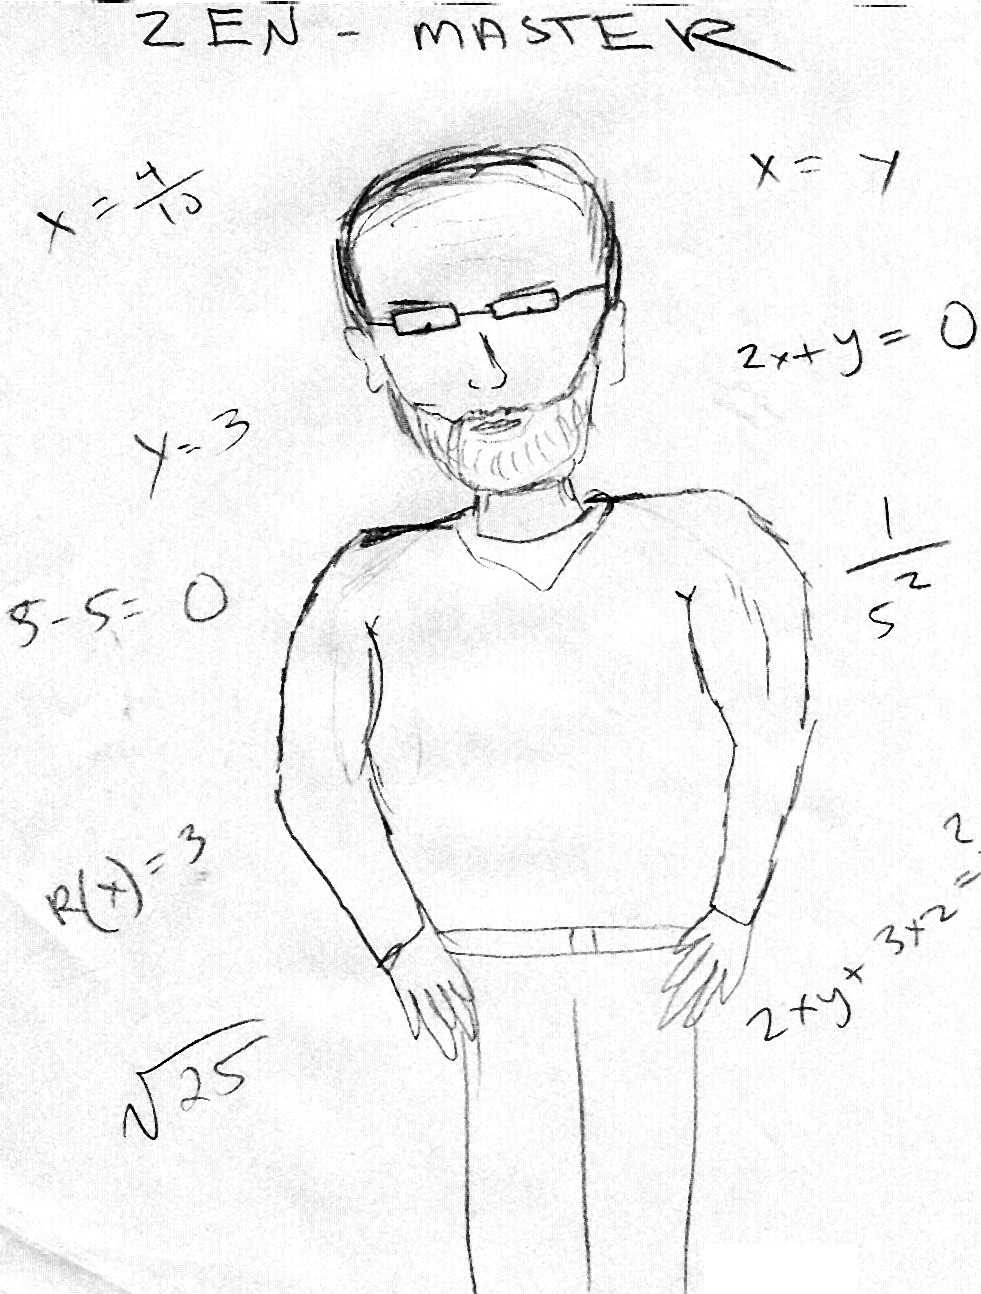 ZEN - MASTER
x = 4/10
x = y
2x+y = 0
y = 3
1/5²
5-5= 0
R(x) = 3
√25